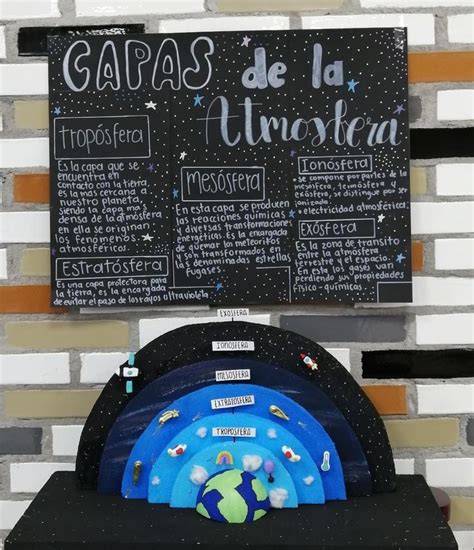 CAPAS de la
Atmosfera
tropósfera
Es la capa que se
encuentra en
contacto con la tierra,
es la mas cercana a
nuestro planeta,
siendo la capa mas
densa de la atmósfera
en ella se originan
los fenómenos
atmosféricos.
Estratósfera
Es una capa protectora para
la tierra, es la encargada
de evitar el paso de los rayos ultravioleta
mesósfera
En esta capa se producen
las reacciones químicas
y diversas transformaciones
energéticas. Es la encargada
de quemar los meteoritos
y son transformados en
las denominadas estrellas
fugases.
Ionósfera
- se compone por partes de la
mesósfera, termósfera y
exósfera, se distingue por ser
ionizado.
• electricidad atmosférica
Exósfera
Es la zona de transito
entre la atmósfera
terrestre y el espacio.
- En esta los gases van
perdiendo sus propiedades
físico-químicas
EXOSFERA
IONOSFERA
MESOSFERA
EXTRATOSFERA
TROPOSFERA